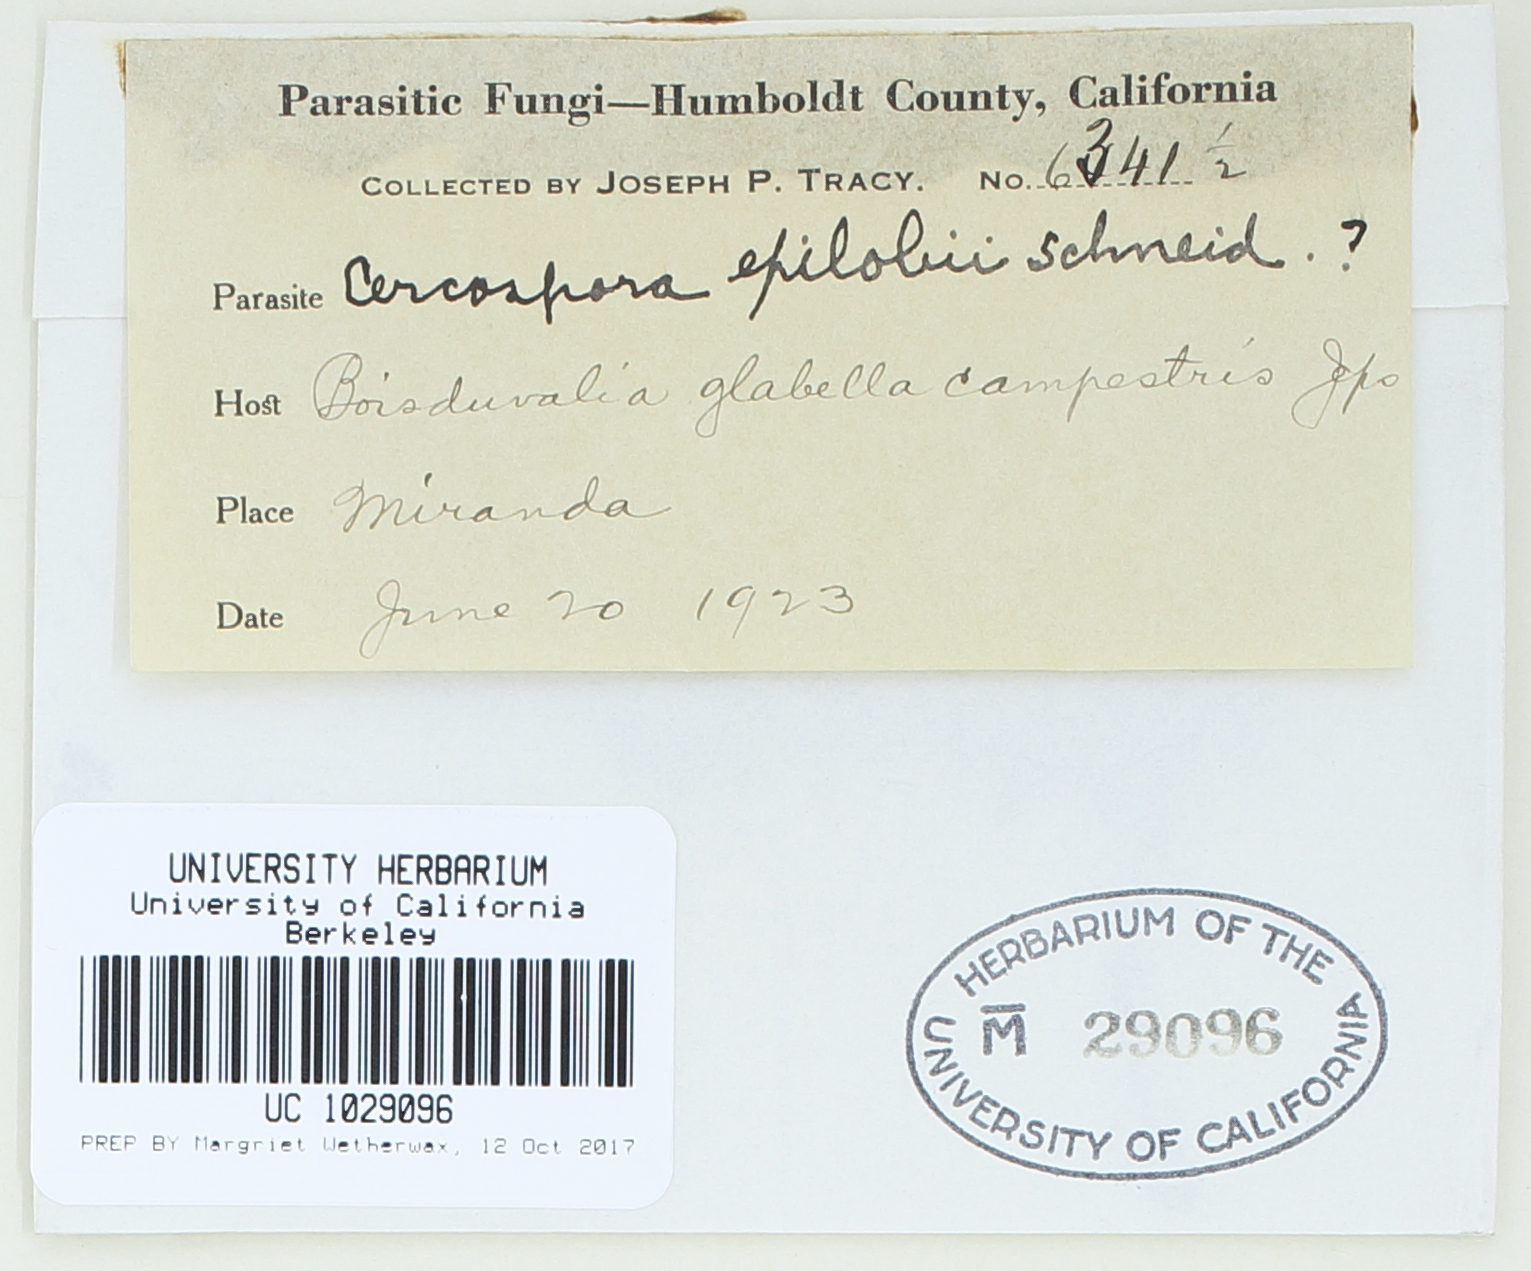 Parasitic Fungi—Humboldt County, California
COLLECTED BY JOSEPH P. TRACY. No. 6341 1/2
Parasite Cercospora epilobii Schneid. ?
Host Boisduvalia glabella campestris Jps
Place Miranda
Date June 20 1923
UNIVERSITY HERBARIUM
University of California
Berkeley
UC 1029096
PREP BY Margriet Wetherwax, 12 Oct 2017
HERBARIUM OF THE
M̅ 29096
UNIVERSITY OF CALIFORNIA